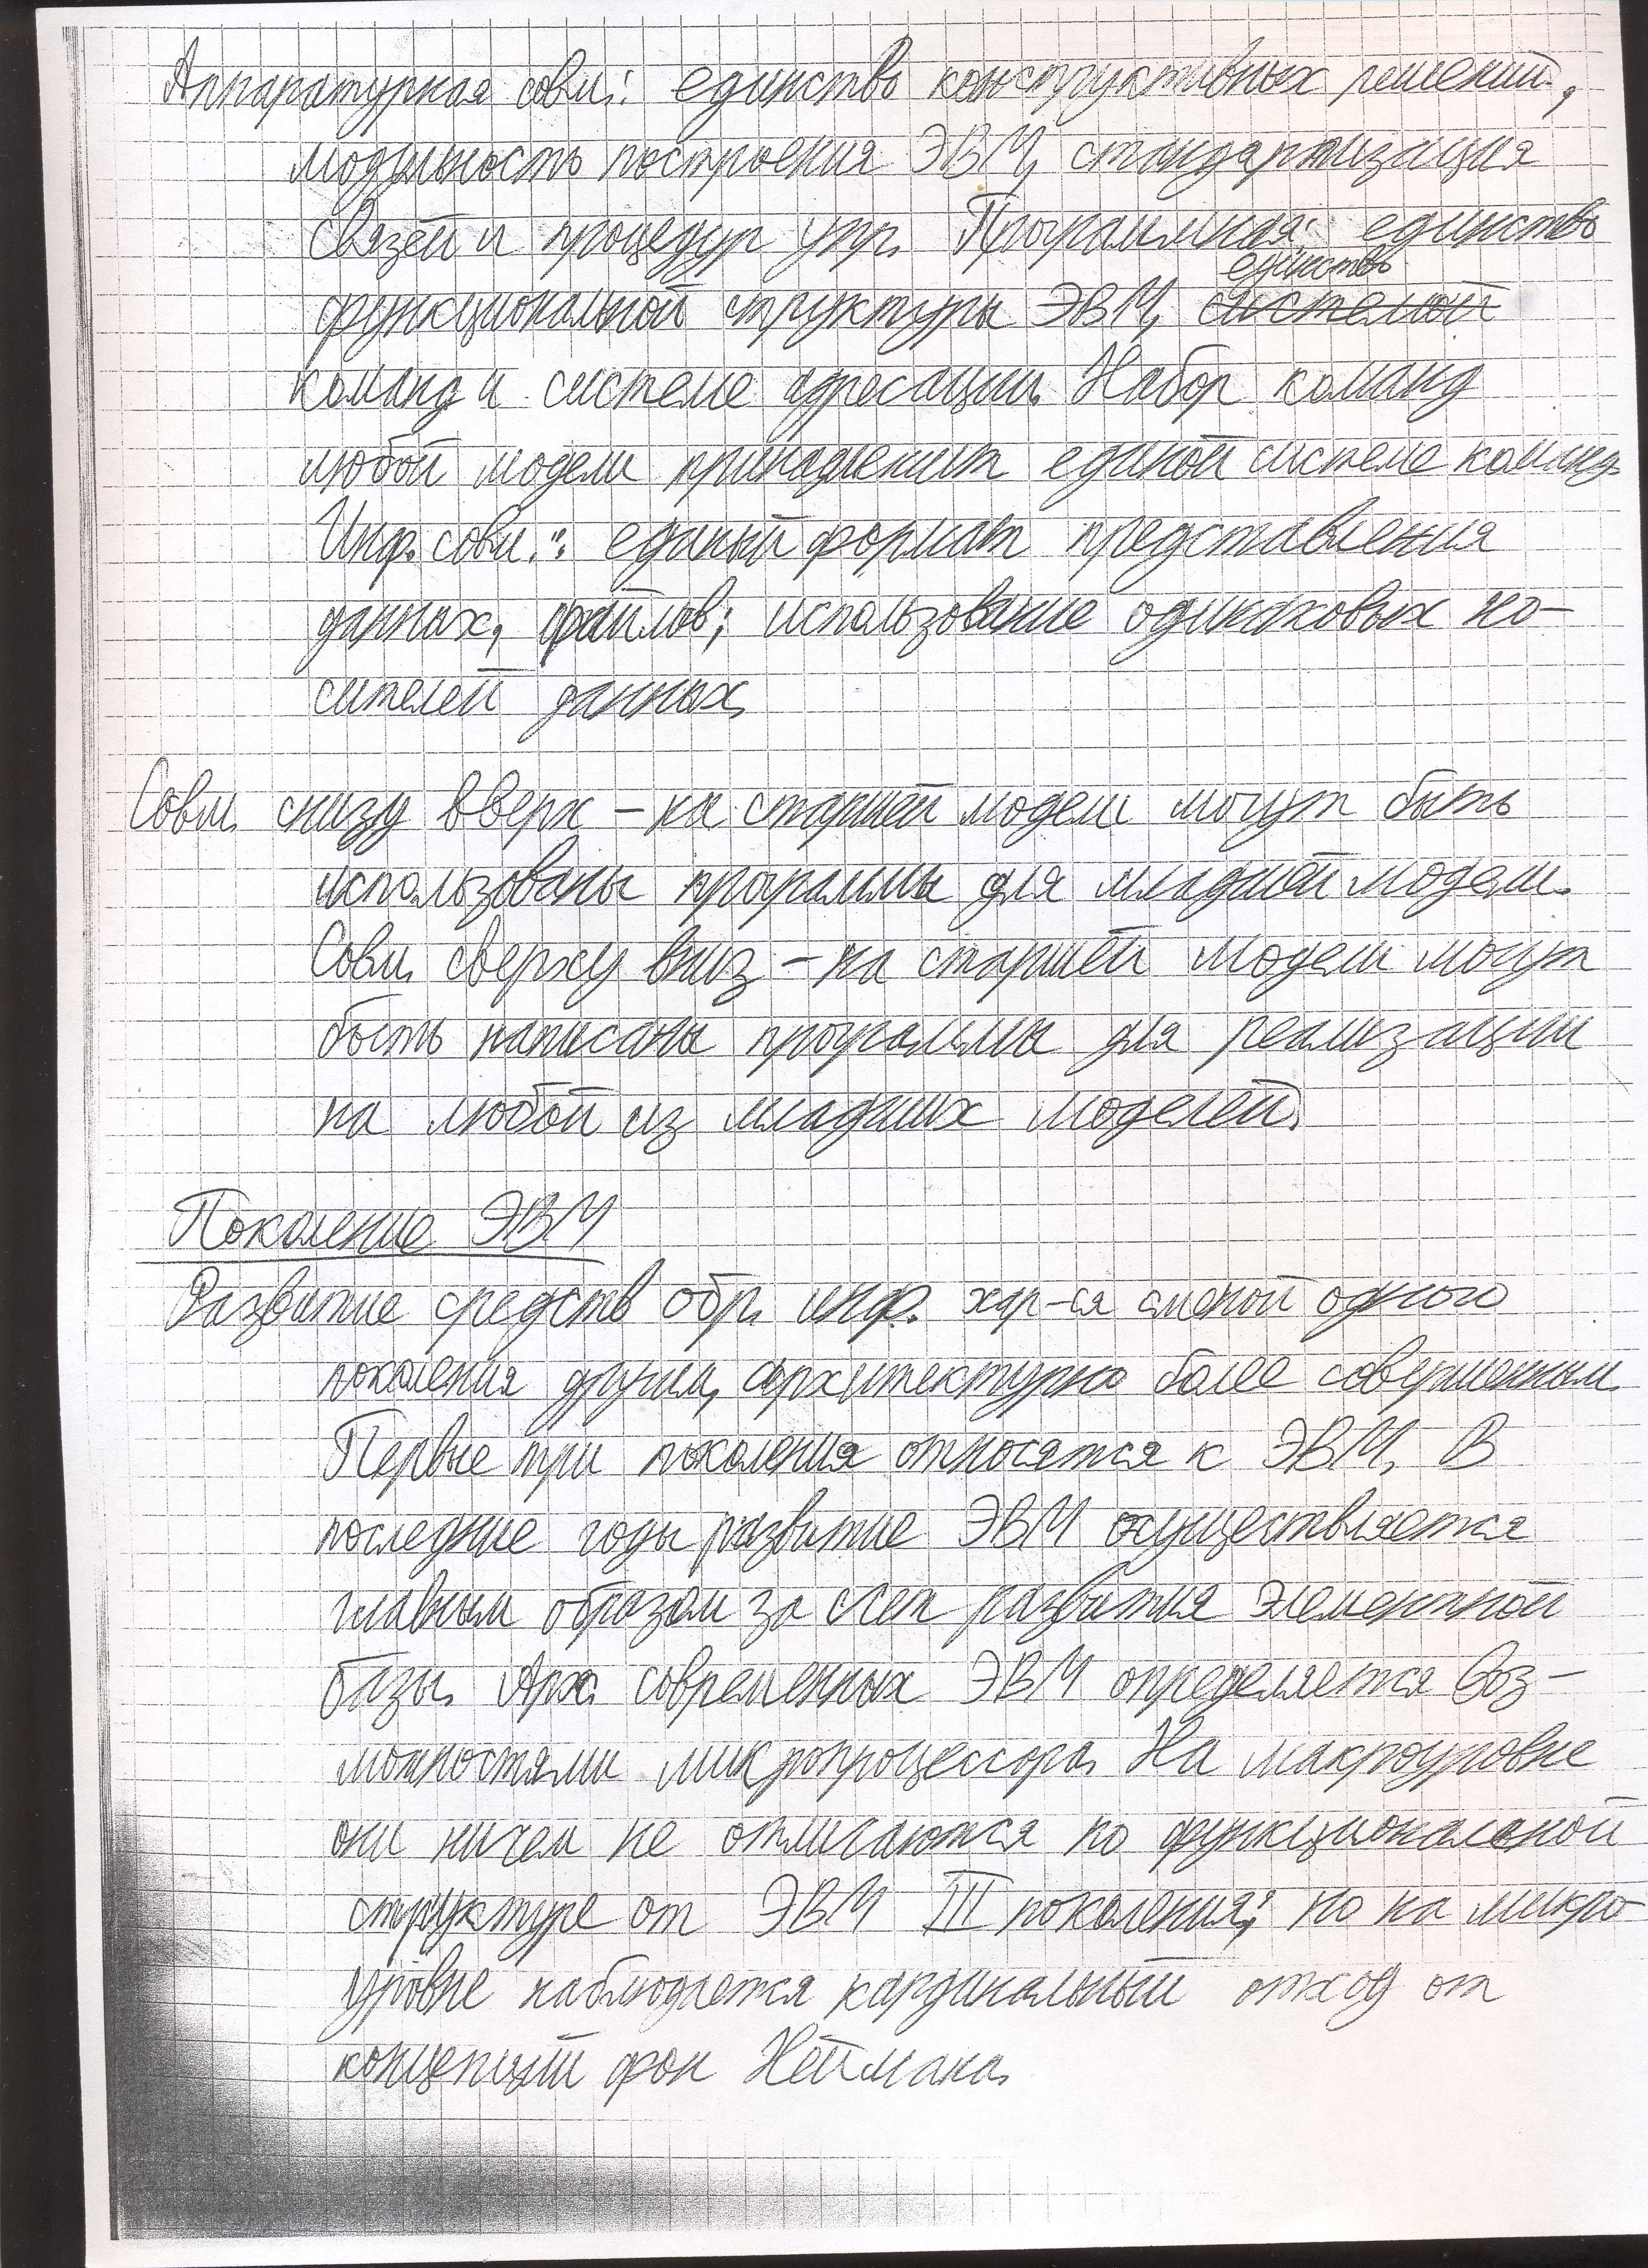 Аппаратурная совм.: единство конструктивных решений,
модульность построения ЭВМ, стандартизация
связей и процедур упр. Программная: единство
единство
функциональной структуры ЭВМ, системой
команд и системе адресации. Набор команд
любой модели принадлежит единой системе команд.
Инф. совм.: единый формат представления
данных, файлов; использование одинаковых но-
сителей данных.
Совм. снизу вверх – на старшей модели могут быть
использованы программы для младшей модели.
Совм. сверху вниз – на старшей модели могут
быть написаны программы для реализации
на любой из младших моделей.
Поколение ЭВМ
Развитие средств обр. инф. хар-ся сменой одного
поколения другим, архитектурно более совершенным.
Первые три поколения относятся к ЭВМ. В
последние годы развитие ЭВМ осуществляется
главным образом за счет развития элементной
базы. Арх. современных ЭВМ определяется воз-
можностями микропроцессора. На макроуровне
они ничем не отличаются по функциональной
структуре от ЭВМ III поколения; но на микро-
уровне наблюдается кардинальный отход от
концепций фон Неймана.